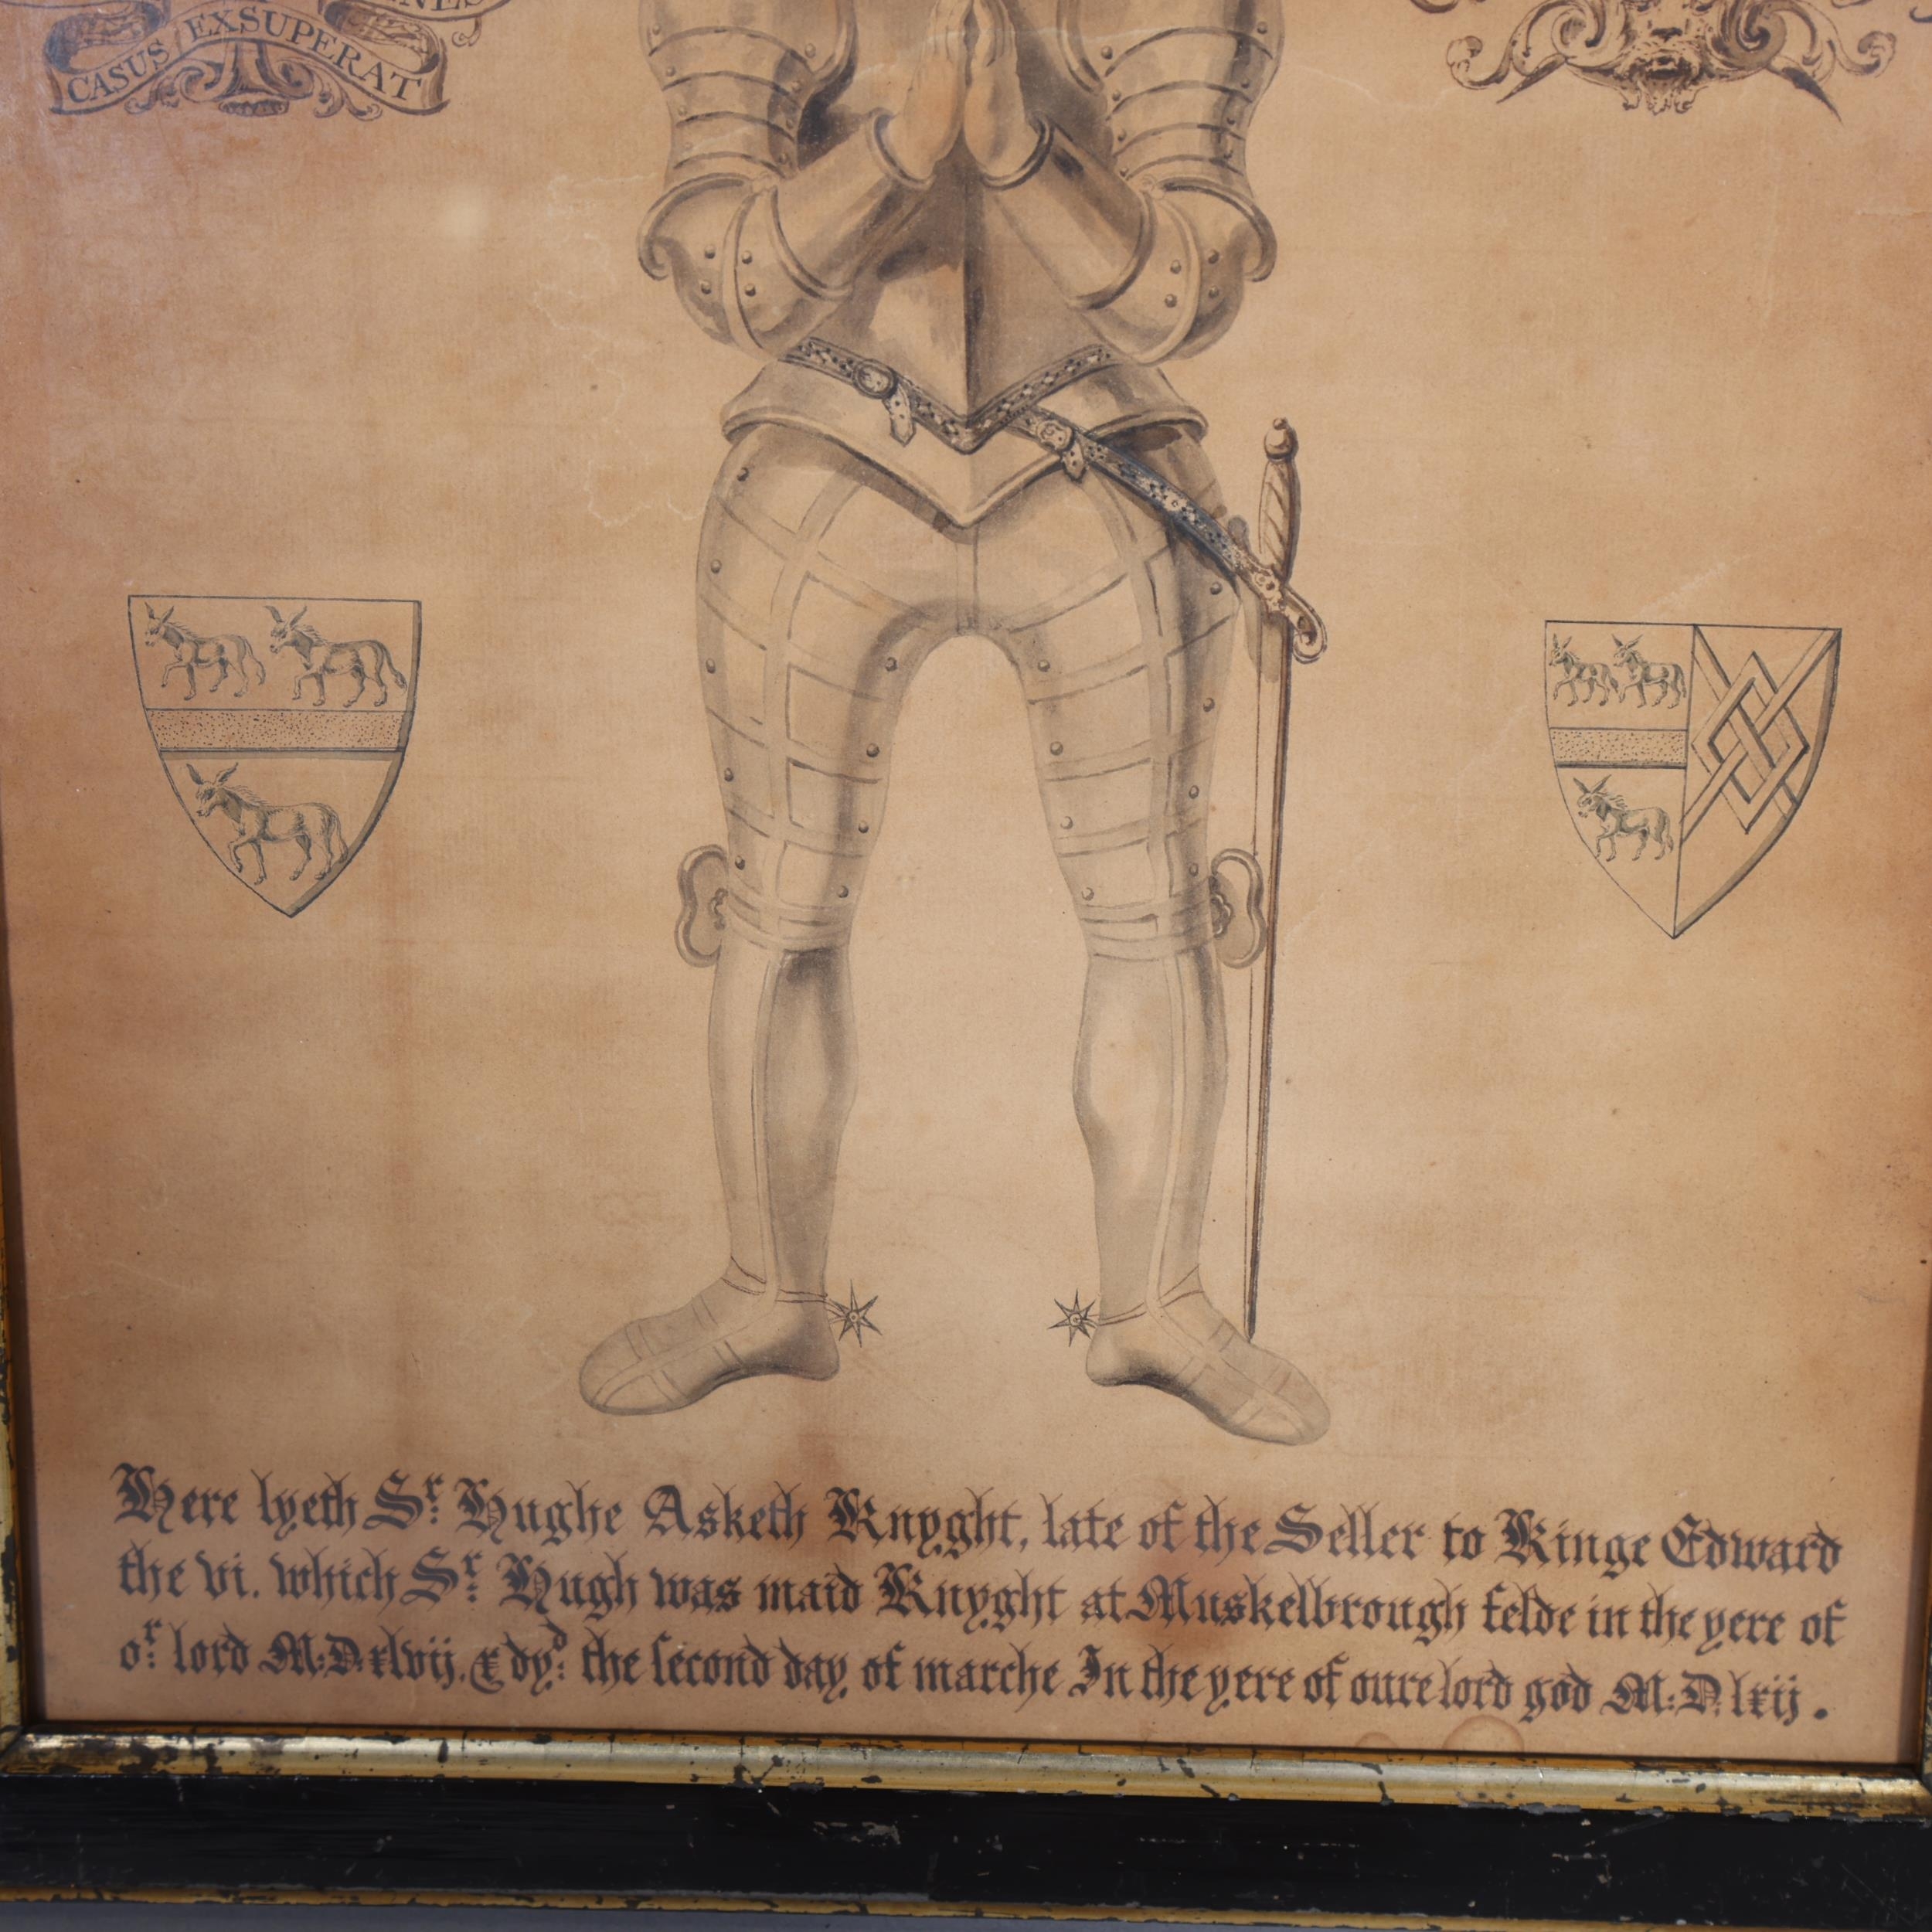 CASUS EXSUPERAT
Here lyeth Sr: Hughe Asketh Knyght, late of the Seller to Kinge Edward
the vi. which Sr: Hugh was maid Knyght at Muskelbrough felde in the yere of
or: lord M:D:xlvij. & dyd: the second day of marche In the yere of oure lord god M:D:lxij.